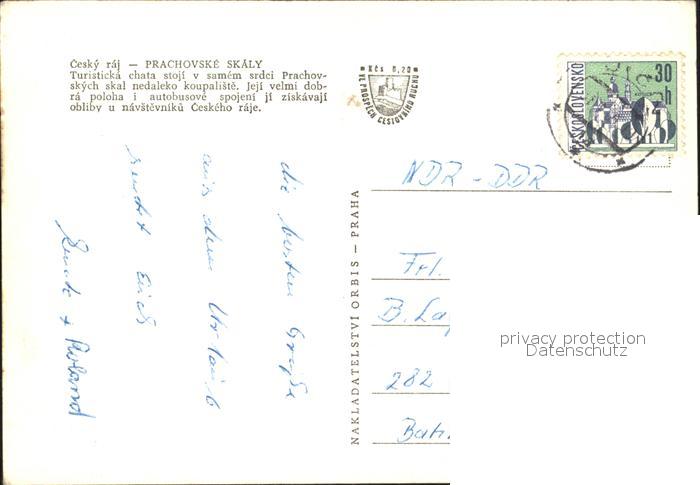 Český ráj — PRACHOVSKÉ SKÁLY
Turistická chata stojí v samém srdci Prachov-
ských skal nedaleko koupaliště. Její velmi dob-
rá poloha i autobusové spojení jí získávají
obliby u návštěvníků Českého ráje.
Kčs 0,20
VE PROSPĚCH CESTOVNÍHO RUCHU
ČESKOSLOVENSKO
30
h
NAKLADATELSTVÍ ORBIS — PRAHA
die besten Grüße
aus dem Urlaub
sendet Euch
+ Roland
NDR - DDR
Frl.
B. La
282
privacy protection
Datenschutz